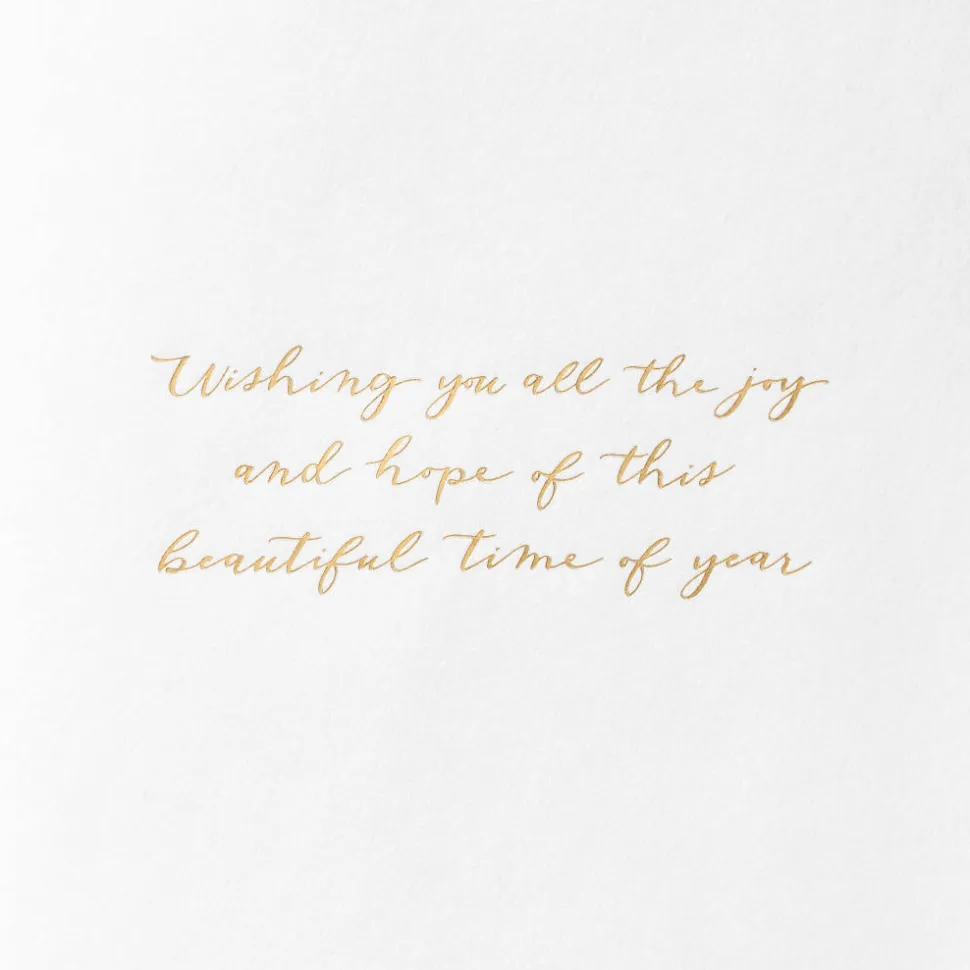 Wishing you all the joy
and hope of this
beautiful time of year